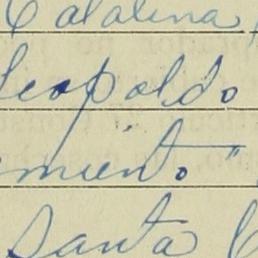 Catalina
Leopoldo
miento"
Santa C